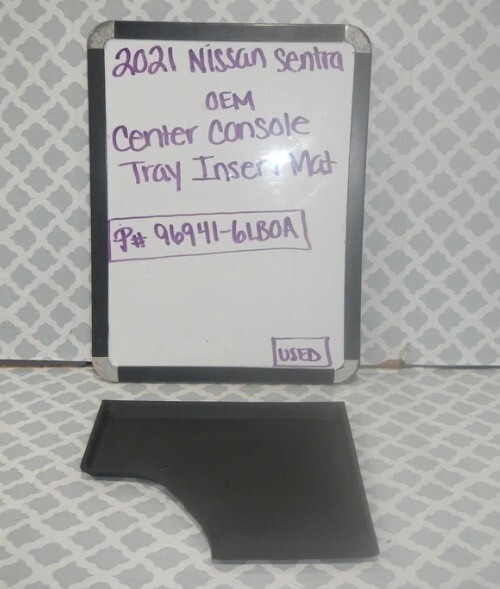 2021 Nissan Sentra
OEM
Center Console
Tray Insert Mat
P# 96941-6LB0A
USED